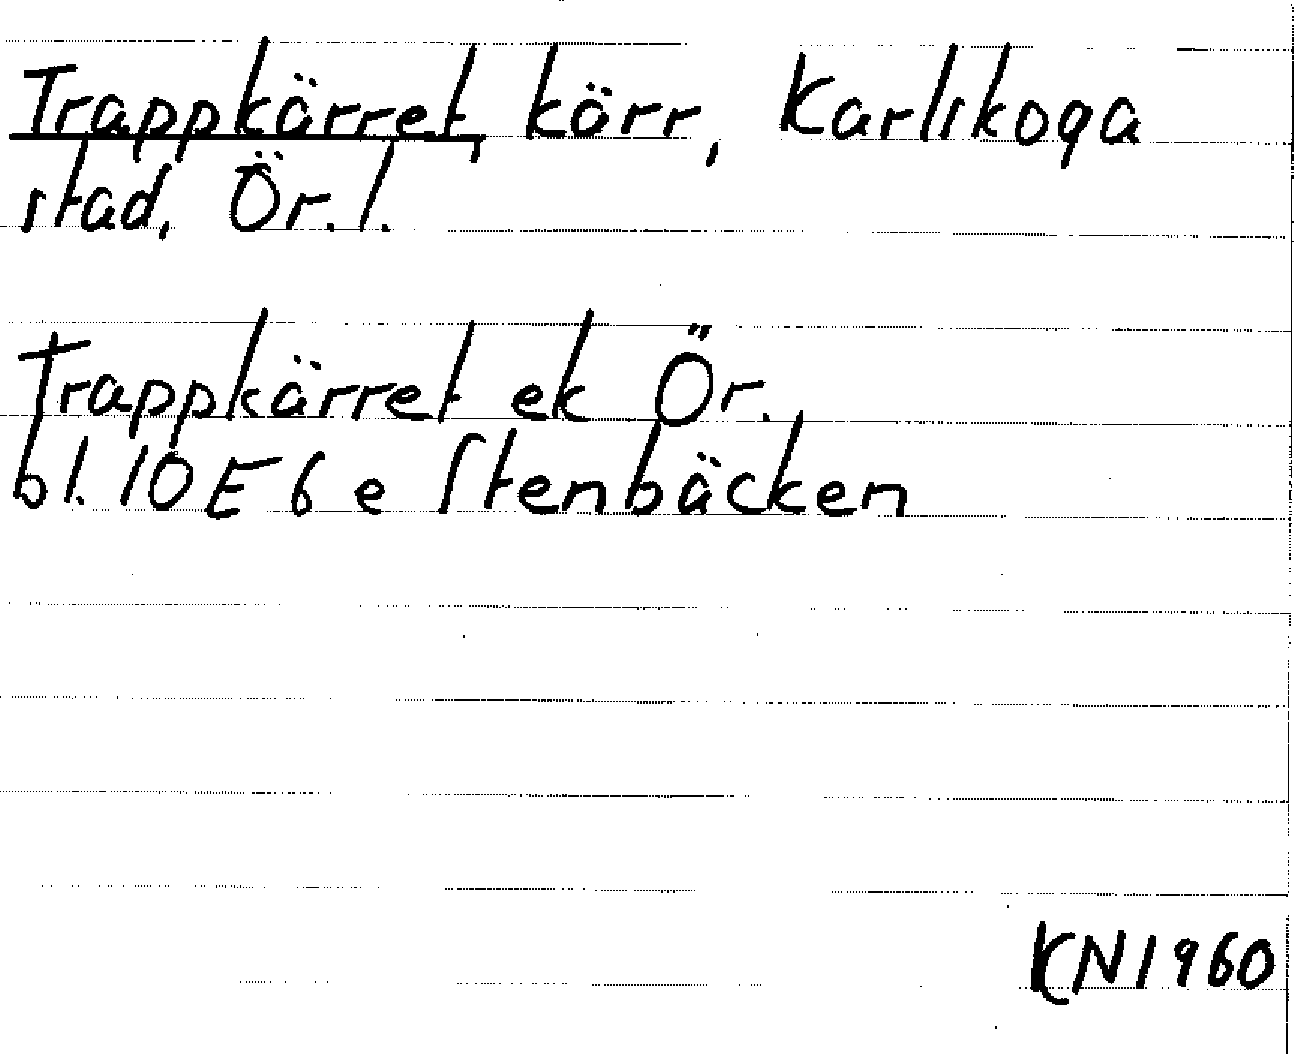 Trappkärret, körr, Karlskoga
stad, Ör. l.
Trappkärret ek Ör.
bl. 10 E 6 e Stenbäcken
KN 1960